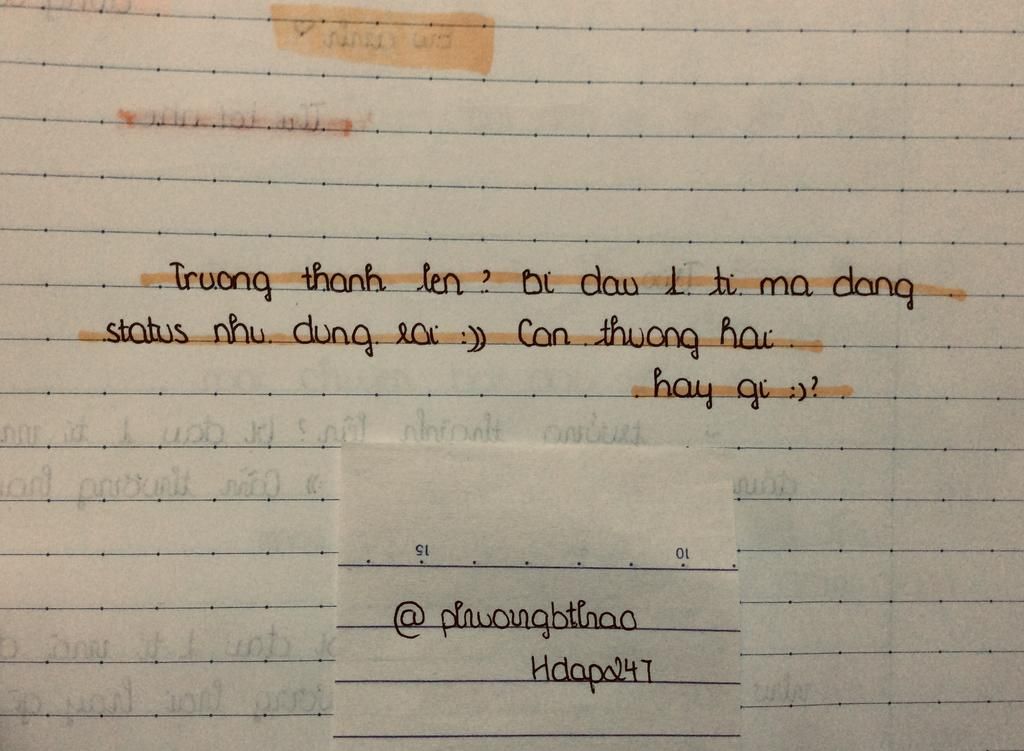 Truong thanh len ? Bi dau 1 ti ma dang
status nhu dung roi :)) Can thuong hai
hay gi :)?
15
10
@ phuongbthao
Hdapd247